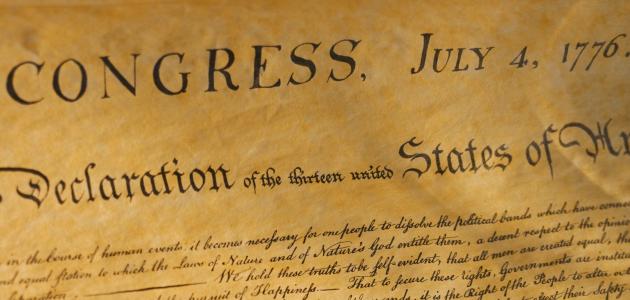 CONGRESS, JULY 4, 1776.
Declaration of the thirteen united States of
in the Course of human events, it becomes necessary for one people to dissolve the political bands which have
and equal station to which the Laws of Nature and of Nature's God entitle them, a decent respect to the
We hold these truths to be self-evident, that all men are created equal,
pursuit of Happiness.— That to secure these rights, Governments are
it is the Right of the People to alter
their Safety